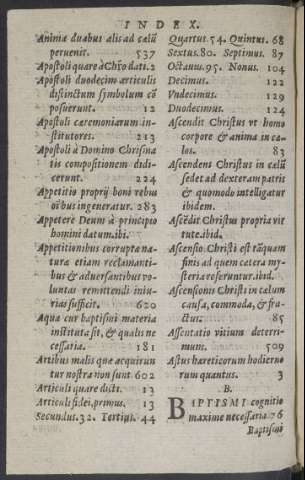 INDEX.
Animæ duabus alis ad cælũ
peruenit. 537
Apoſtoli quare à Chr̃o dati. 2
Apoſtoli duodecim articulis
diſtinctum ſymbolum cõ
poſuerunt. 12
Apoſtoli cæremoniarum in-
ſtitutores. 213
Apoſtoli à Domino Chriſma
tis compoſitionem didi-
cerunt. 224
Appetitio proprij boni rebus
oĩbus ingeneratur. 283
Appetere Deum à principio
homini datum. ibi.
Appetitionibus corruptæ na-
turæ etiam reclamanti-
bus & aduerſantibus vo-
luntas remittendi iniu-
rias ſufficit. 620
Aqua cur baptiſmi materia
inſtituta ſit, & qualis ne
ceſſaria. 181
Artibus malis quæ acquirun
tur noſtra non ſunt 602
Articuli quare dicti. 13
Articuli fidei, primus. 13
Secundus. 32. Tertius. 44
Quartus. 54. Quintus. 68
Sextus. 80. Septimus. 87
Octauus. 95. Nonus. 104
Decimus. 122
Vndecimus. 129
Duodecimus. 124
Aſcendit Chriſtus vt homo
corpore & anima in cæ-
los. 83
Aſcendens Chriſtus in cælũ
ſedet ad dexteram patris
& quomodo intelligatur
ibidem.
Aſcẽdit Chriſtus propria vir
tute. ibid.
Aſcenſio Chriſti eſt tãquam
finis ad quem cætera my-
ſteria referuntur. ibid.
Aſcenſionis Chriſti in cælum
cauſa, commoda, & fru-
ctus. 85
Aſſentatio vitium deterri-
mum. 509
Aſtus hæreticorum hodierno
rum quantus. 3
B.
BAPTISMI cognitio
maxime neceſſaria. 76
Baptiſmi